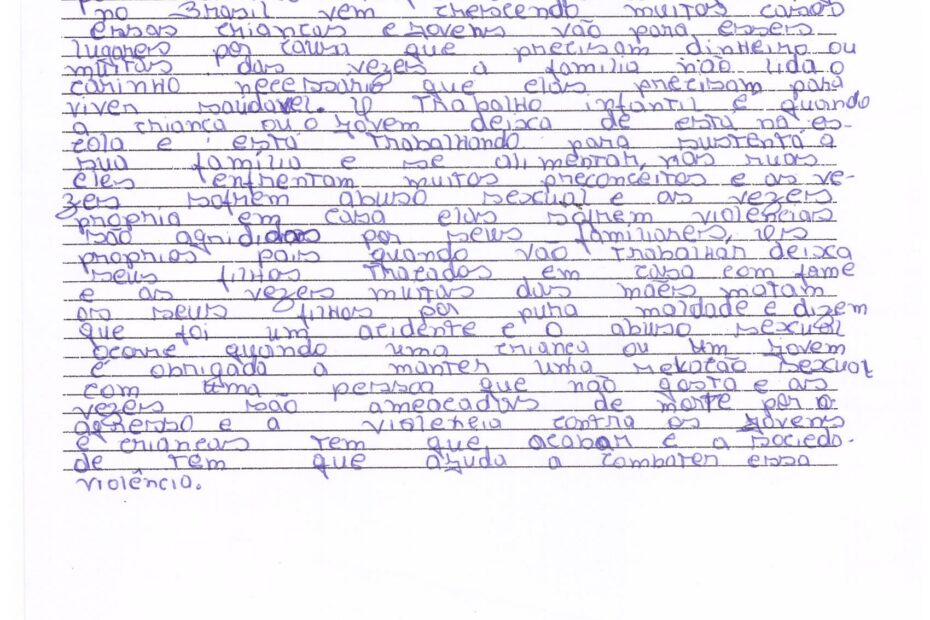 no Brasil vem crescendo muitos casos
essas crianças e jovens vão para esses
lugares por causa que precisam dinheiro ou
muitas das vezes a familia não lida o
carinho necessario que elas precisam para
viver saudavel. O Trabalho infantil é quando
a criança ou o jovem deixa de está na es-
cola e está Trabalhando para sustenta a
sua família e se alimentar, nas ruas
eles enfrentam muitos preconceitos e as ve-
zes sofrem abuso sexual e as vezes
propria em casa elas sofrem violências
são agrididas por seus familiares, os
proprios pais quando vão Trabalhar deixa
seus filhos Tracados em casa com fome
e as vezes muitas das mães matam
os seus filhos por pura maldade e dizem
que foi um acidente e o abuso sexual
ocorre quando uma criança ou um jovem
é obrigada a manter uma relação sexual
com uma pessoa que não gosta e as
vezes são ameaçadas de morte por o
agresso e a violencia contra os jovens
e crianças tem que acabar e a socieda-
de tem que ajuda a combater essa
violência.